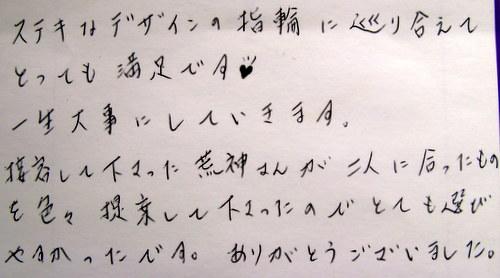 ステキなデザインの指輪に巡り合えて
とっても満足です♥
一生大事にしていきます。
接客して下さった荒神さんが二人に合ったもの
を色々提案して下さったのでとても選び
やすかったです。ありがとうございました。